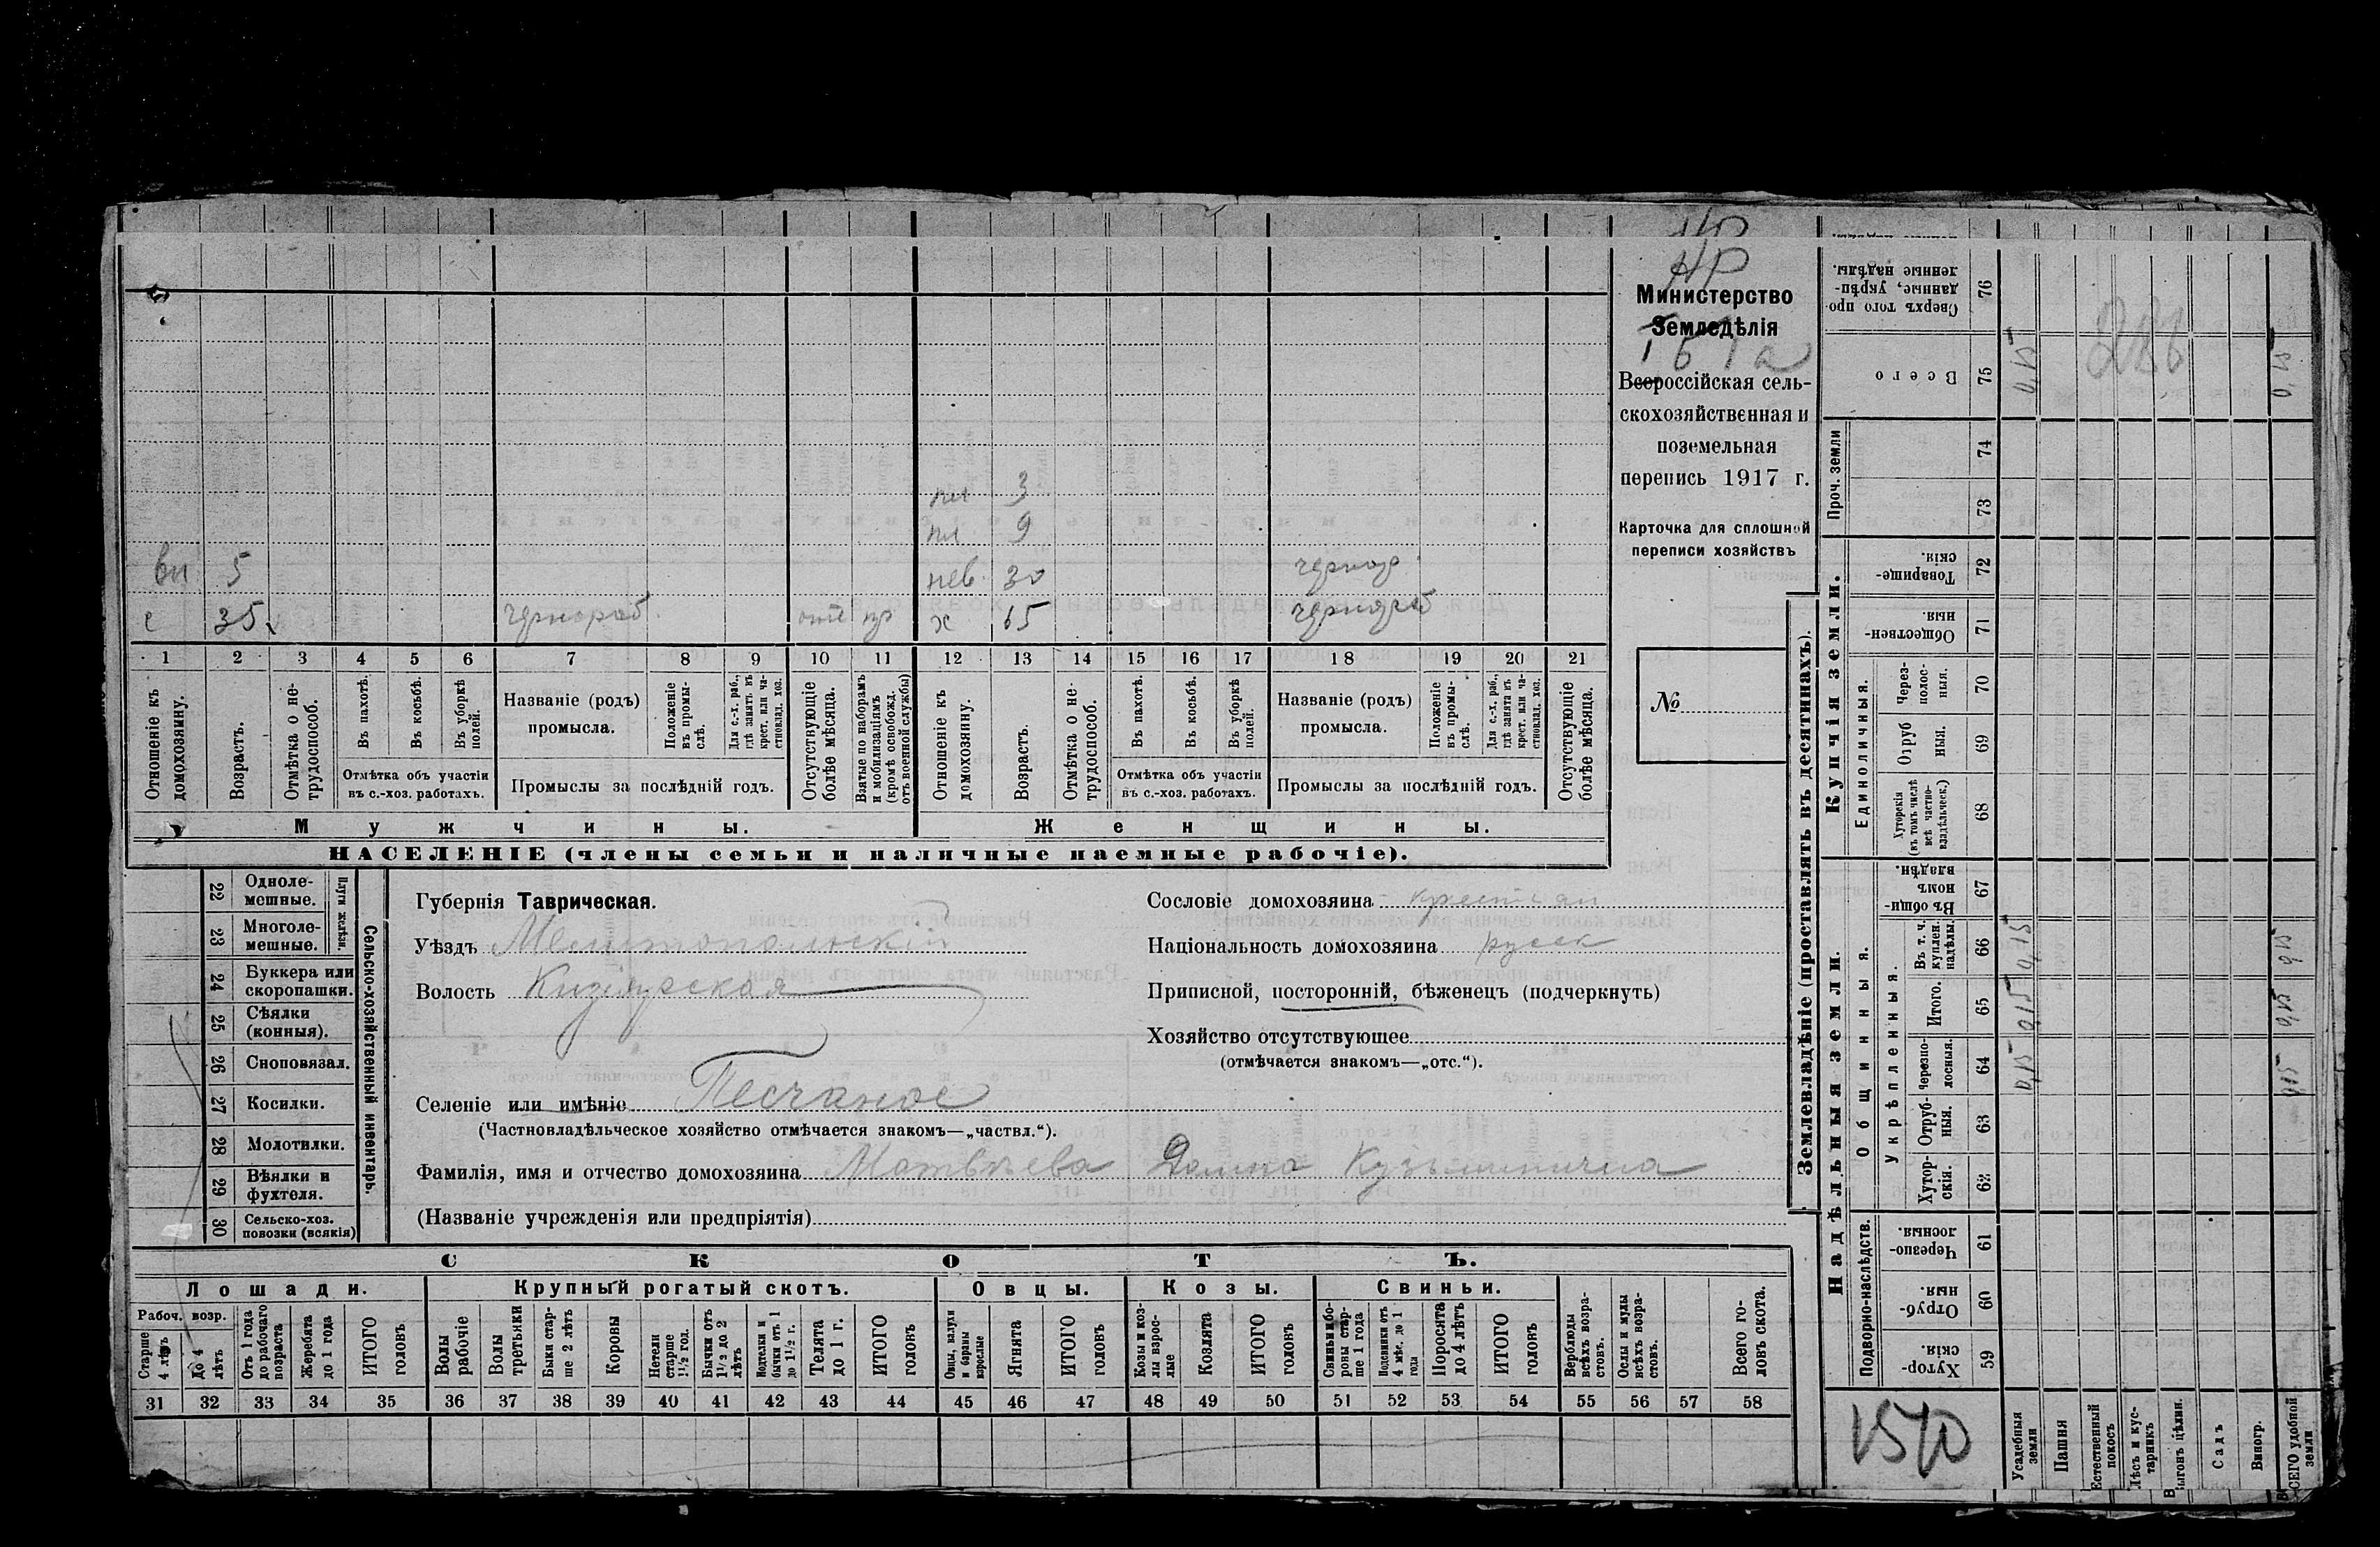 НР
Министерство
Земледѣлія
Всероссійская сель-
скохозяйственная и
поземельная
перепись 1917 г.
Карточка для сплошной
переписи хозяйствъ
№
пл 3
пл 9
вн 5 нев. 30 чернор
с 35 чернораб. отс пр ж 65 чернораб
1 2 3 4 5 6 7 8 9 10 11 12 13 14 15 16 17 18 19 20 21
Отношеніе къ домохозяину.
Возрастъ.
Отмѣтка о не-трудоспособ.
Въ пахотѣ.
Въ косьбѣ.
Въ уборкѣ полей.
Отмѣтка объ участіи
въ с.-хоз. работахъ.
Названіе (родъ)
промысла.
Положеніе въ промы-слѣ.
Для с.-х. раб., гдѣ занятъ въ крест. или ча-стновлад. хоз.
Промыслы за послѣдній годъ.
Отсутствующіе болѣе мѣсяца.
Взятые по наборамъ и мобилизаціямъ (кромѣ освобожд. отъ военной службы)
Отношеніе къ домохозяину.
Возрастъ.
Отмѣтка о не-трудоспособ.
Въ пахотѣ.
Въ косьбѣ.
Въ уборкѣ полей.
Отмѣтка объ участіи
въ с.-хоз. работахъ.
Названіе (родъ)
промысла.
Положеніе въ промы-слѣ.
Для с.-х. раб., гдѣ занята въ крест. или ча-стновлад. хоз.
Промыслы за послѣдній годъ.
Отсутствующіе болѣе мѣсяца.
Мужчины. Женщины.
НАСЕЛЕНІЕ (члены семьи и наличные наемные рабочіе).
22 Одноле-мешные.
23 Многоле-мешные.
Плуги желѣзн.
24 Буккера или скоропашки.
25 Сѣялки (конныя).
26 Сноповязал.
27 Косилки.
28 Молотилки.
29 Вѣялки и фухтеля.
30 Сельско-хоз. повозки (всякія)
Сельско-хозяйственный инвентарь.
Губернія Таврическая.
Уѣздъ Мелитопольскій
Волость Кизіярская
Селеніе или имѣніе Песчаное
(Частновладѣльческое хозяйство отмѣчается знакомъ—„частвл.“).
Фамилія, имя и отчество домохозяина Матвѣева Домна Кузьминична
(Названіе учрежденія или предпріятія)
Сословіе домохозяина крестьян
Національность домохозяина русск
Приписной, посторонній, бѣженецъ (подчеркнуть)
Хозяйство отсутствующее
(отмѣчается знакомъ—„отс.“).
СКОТЪ.
Лошади. Крупный рогатый скотъ. Овцы. Козы. Свиньи.
Рабоч. возр.
Старше 4 лѣтъ
До 4 лѣтъ
Отъ 1 года до рабочаго возраста
Жеребята до 1 года
ИТОГО головъ
Волы рабочіе
Волы третьяки
Быки стар-ше 2 лѣтъ
Коровы
Нетели старше 1½ год.
Бычки отъ 1½ до 2 лѣтъ
Подтелки и бычки отъ 1 до 1½ г.
Телята до 1 г.
ИТОГО головъ
Овцы, валухи и бараны взрослые
Ягнята
ИТОГО головъ
Козы и коз-лы взрос-лые
Козлята
ИТОГО головъ
Свиньи и бо-ровы стар-ше 1 года
Подсвинки отъ 4 мѣс. до 1 года
Поросята до 4 лѣтъ
ИТОГО головъ
Верблюды всѣхъ возра-стовъ.
Ослы и мулы всѣхъ возра-стовъ.
Всего го-ловъ скота.
31 32 33 34 35 36 37 38 39 40 41 42 43 44 45 46 47 48 49 50 51 52 53 54 55 56 57 58
Землевладѣніе (проставлять въ десятинахъ).
Купчія земли.
Надѣльныя земли.
Проч. земли
Единоличныя.
Общинныя.
Укрѣпленныя.
Подворно-наслѣдств.
Сверхъ того про-данные, укрѣп-ленные надѣлы. 76
Всего 75
74
73
Товарище-скія. 72
Обществен-ныя. 71
Через-полос-ныя. 70
Отруб ныя. 69
Хуторскія (въ томъ числѣ всѣ частно-владѣльческ.) 68
Въ общи-номъ владѣн. 67
Въ т. ч. куплен. надѣлы 66
Итого. 65
Черезпо-лосныя. 64
Отруб-ныя. 63
Хутор-скія. 62
Черезпо-лосныя 61
Отруб-ныя. 60
Хутор-скія. 59
Усадебныя земли
Пашня
Естественный покосъ
Лѣсъ и кус-тарникъ
Выгонъ цѣлин.
Садъ
Виногр.
ВСЕГО удобной земли